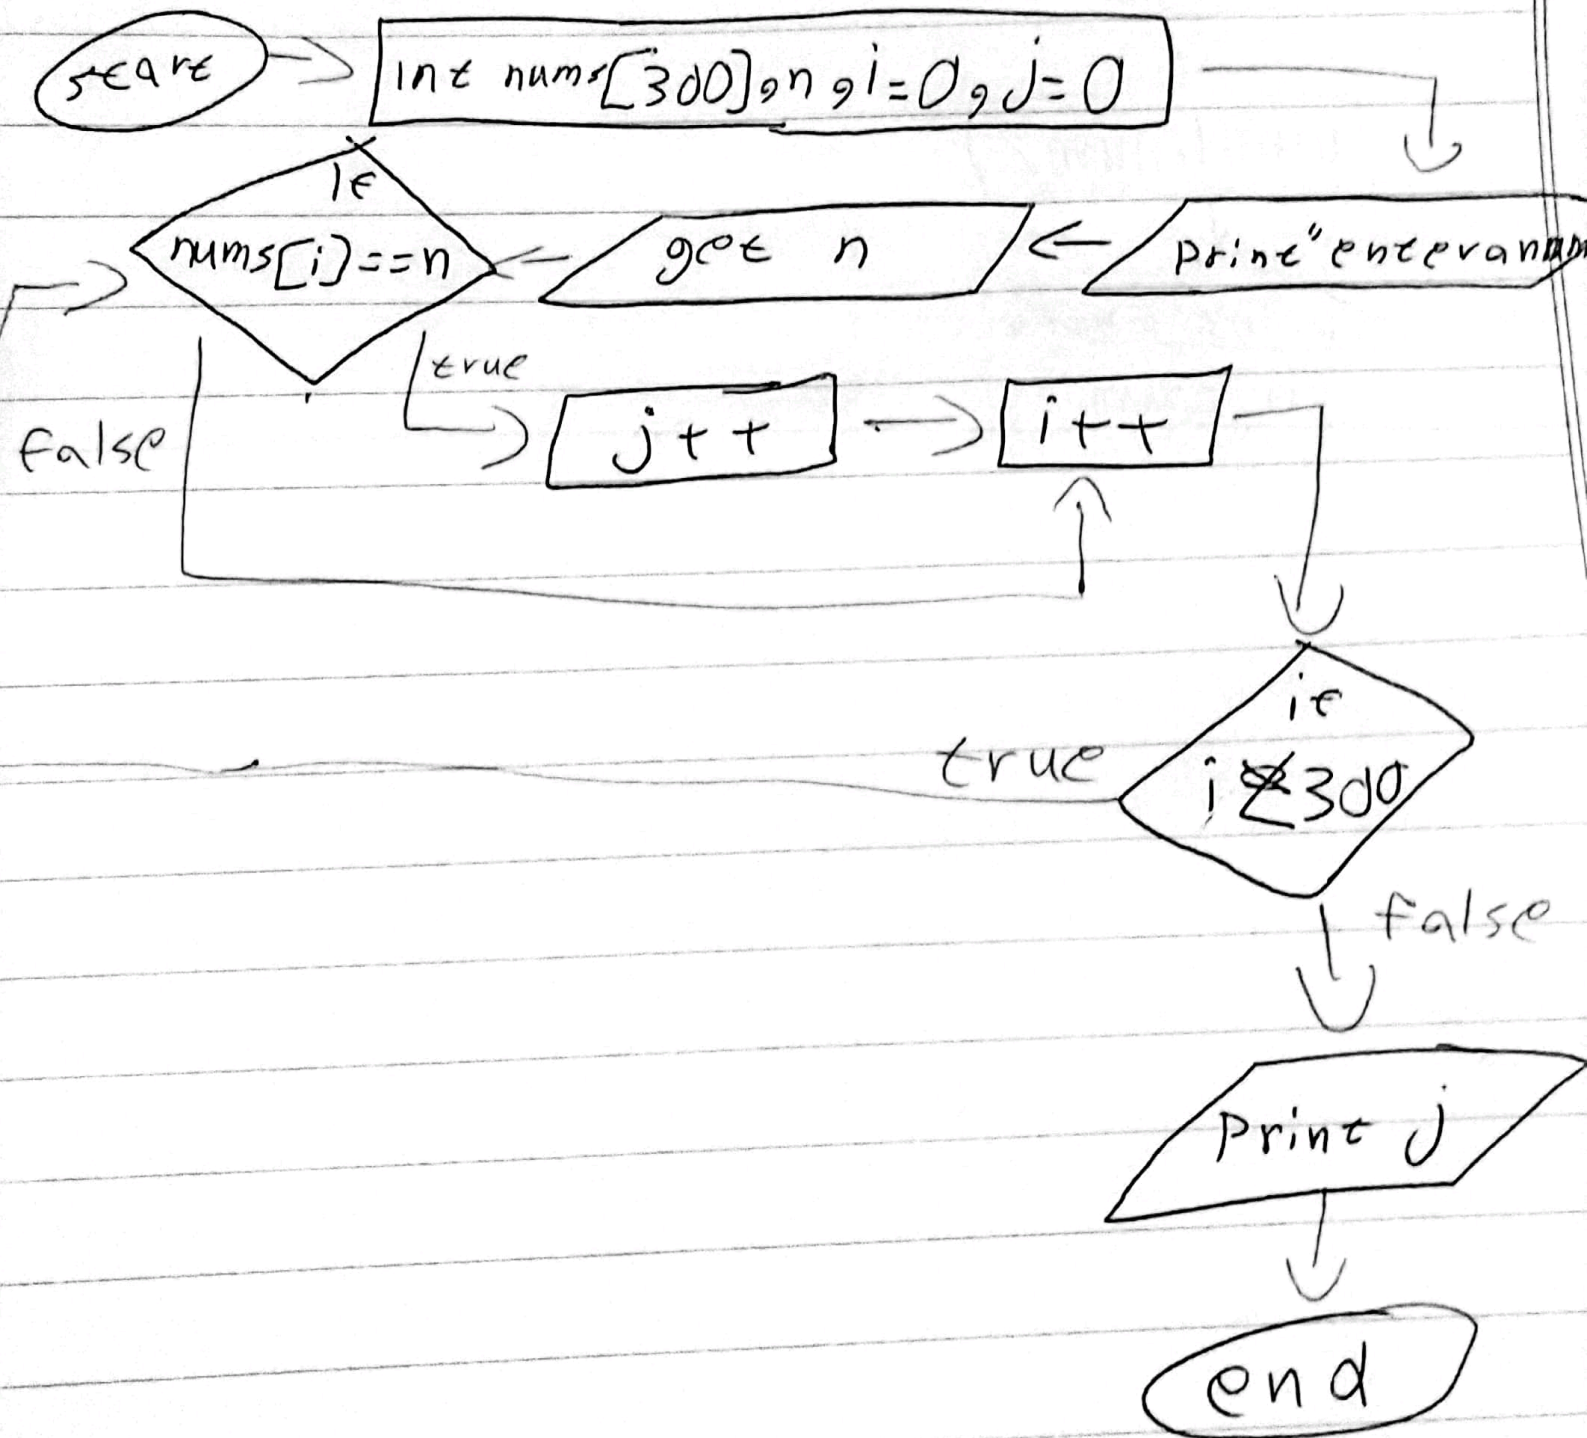 start
int nums[300],n,i=0,j=0
print"enter a num
get n
if
nums[i]==n
true
false
j++
i++
if
i<300
true
false
print j
end